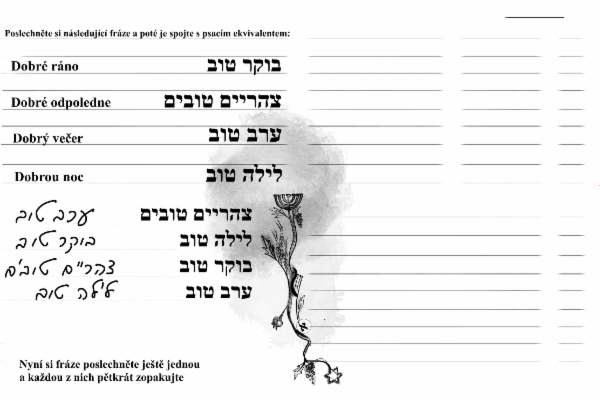 Poslechněte si následující fráze a poté je spojte s psacím ekvivalentem:
Dobré ráno בוקר טוב
Dobré odpoledne צהריים טובים
Dobrý večer ערב טוב
Dobrou noc לילה טוב
ערב טוב צהריים טובים
בוקר טוב לילה טוב
צהריים טובים בוקר טוב
לילה טוב ערב טוב
Nyní si fráze poslechněte ještě jednou
a každou z nich pětkrát zopakujte